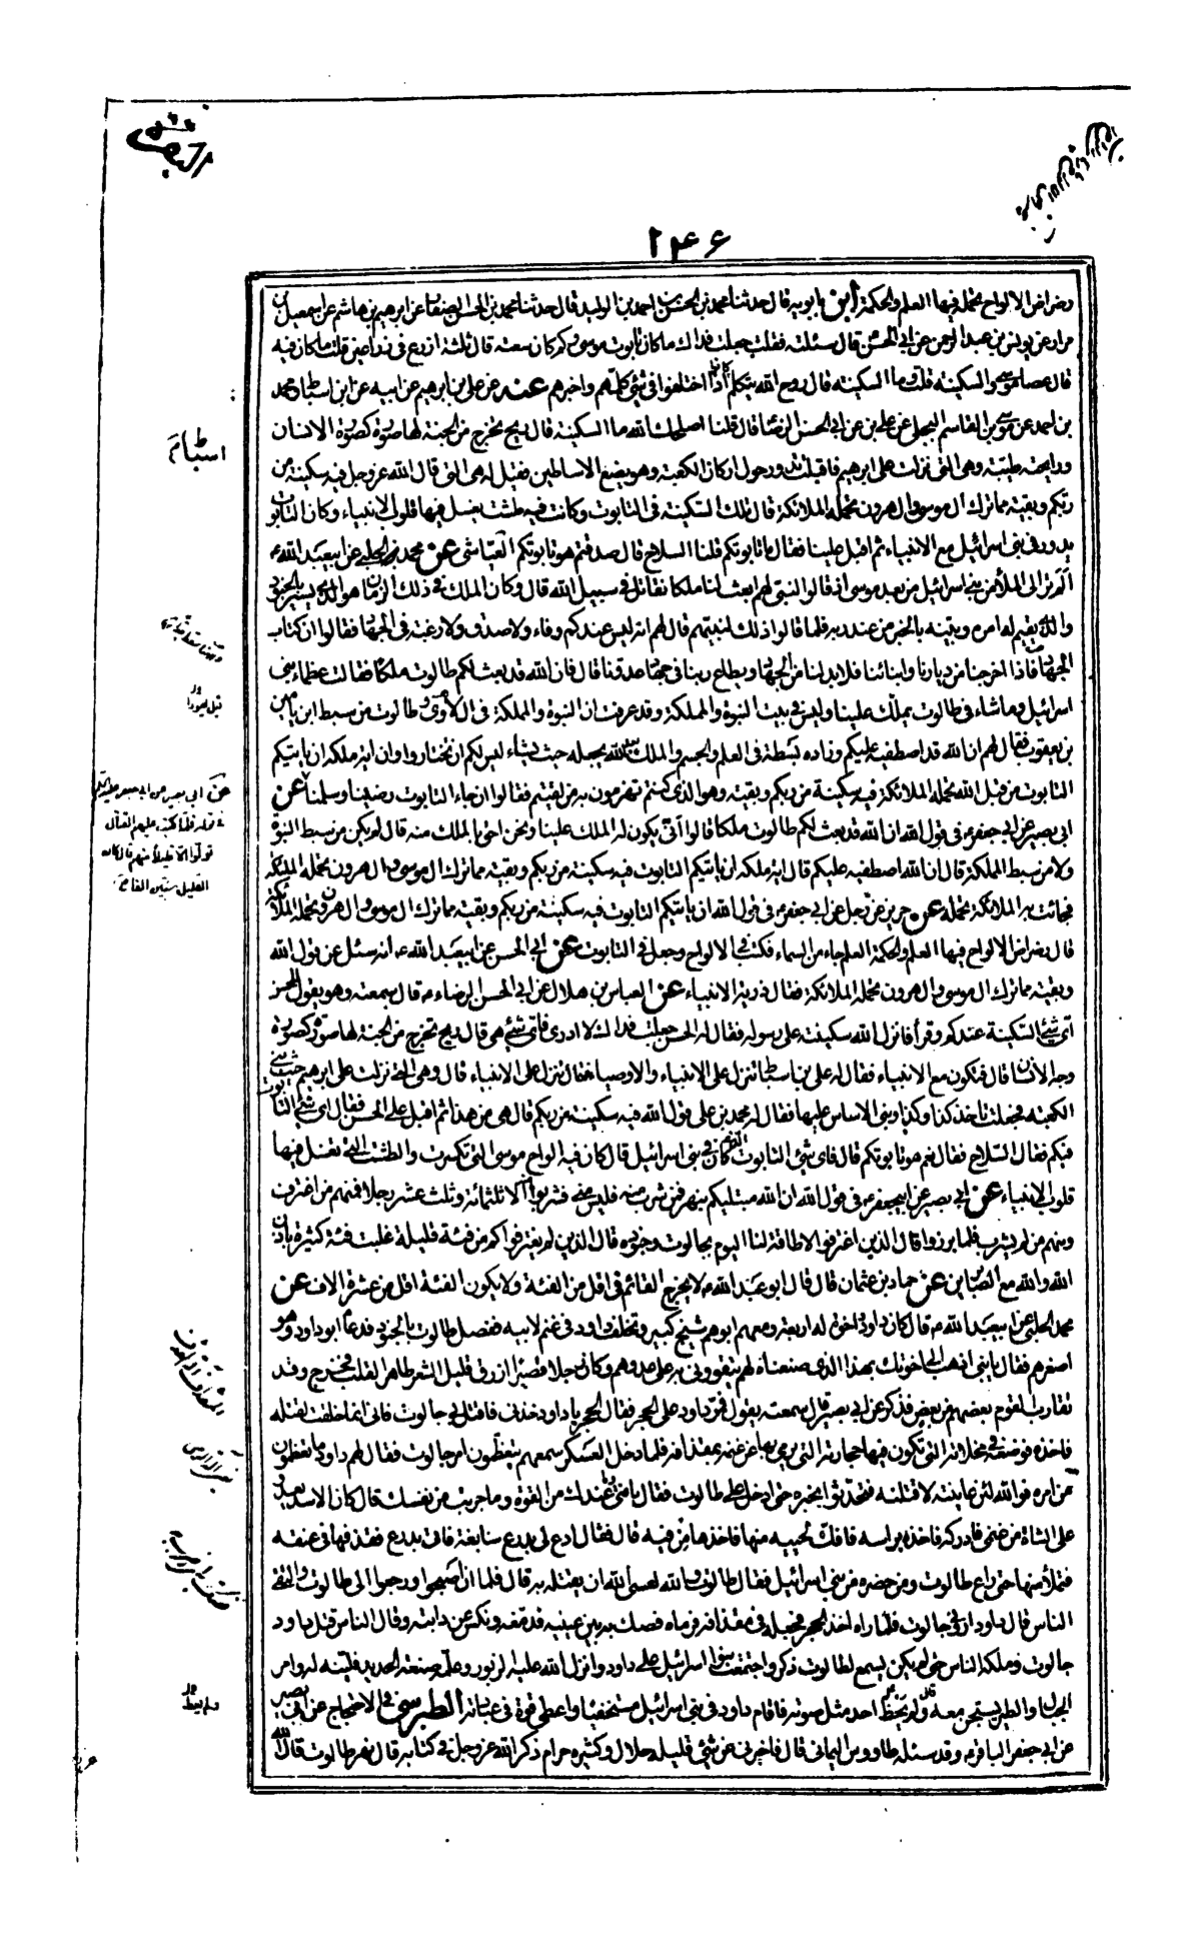 البقرة
١٤٦
رضراض الالواح تحمله فيها العلم والحكمة ابن بابويه قال حدثنا محمد بن الحسن بن احمد بن الوليد قال حدثنا محمد بن الحسن الصفار عن ابرهيم بن هاشم عن اسمعيل بن
مرار عن يونس بن عبد الرحمن عن ابى الحسن قال سئلته فقلت جعلت فداك ما كان تابوت موسى وكم كان سعته قال ثلثة اذرع فى ذراعين قلت ما كان فيه
قال عصا موسى والسكينة قلت وما السكينة قال روح الله يتكلم كانوا اذا اختلفوا فى شئ كلمهم واخبرهم عنه عن على بن ابرهيم عن ابيه عن ابن اسباط ومحمد
بن احمد عن موسى بن القاسم البجلى عن على بن عن ابى الحسن الرضا قال قلنا اصلحك الله ما السكينة قال ريح تخرج من الجنة لها صورة كصورة الانسان
ورايحة طيبة وهى التى نزلت على ابرهيم فاقبلت تدور حول اركان الكعبة وهو يضع الاساطين فقيل له هى التى قال الله عز وجل فيه سكينة من
ربكم وبقية مما ترك ال موسى وال هرون تحمله الملائكة قال تلك السكينة فى التابوت وكانت فيه طشت يغسل فيها قلوب الانبياء وكان التابوت
يدور فى بنى اسرائيل مع الانبياء ثم اقبل علينا فقال ما تابوتكم قلنا السلاح قال صدقتم هو تابوتكم العياشى عن محمد الحلبى عن ابيعبد الله ع
الم تر الى الملأ من بنى اسرائيل من بعد موسى اذ قالوا لنبى لهم ابعث لنا ملكا نقاتل فى سبيل الله قال وكان الملك فى ذلك الزمان هو الذى يسير بالجنود
والنبى يقيم له امره وينبئه بالخبر من عند ربه فلما قالوا ذلك لنبيهم قال لهم انه ليس عندكم وفاء ولا صدق ولا رغبة فى الجهاد فقالوا ان كتاب
الجهاد فاذا اخرجنا من ديارنا وابنائنا فلا بد لنا من الجهاد ويطاع ربنا فى جهاد عدونا قال فان الله قد بعث لكم طالوت ملكا فقالت عظماء بنى
اسرائيل وما شاء فى طالوت يملك علينا وليس فى بيت النبوة والمملكة وقد عرفت ان النبوة والمملكة فى ال لاوى وطالوت من سبط ابن يامين
بن يعقوب فقال لهم ان الله قد اصطفيه عليكم وزاده بسطة فى العلم والجسم والملك بيد الله يجعله حيث يشاء ليس لكم ان تختاروا وان اية ملكه ان ياتيكم
التابوت من قبل الله تحمله الملائكة فيه سكينة من ربكم وبقية وهو الذى كنتم تهزمون به من لقيتم فقالوا ان جاء التابوت رضينا وسلمنا عن
ابى بصير عن ابى جعفر فى قول الله ان الله قد بعث لكم طالوت ملكا قالوا انى يكون له الملك علينا ونحن احق بالملك منه قال لم يكن من سبط النبوة
ولا من سبط المملكة قال ان الله اصطفيه عليكم قال اية ملكه ان ياتيكم التابوت فيه سكينة من ربكم وبقية مما ترك ال موسى وال هرون تحمله الملئكة
فجائت به الملائكة تحمله عن حريز عن رجل عن ابى جعفر فى قول الله ان ياتيكم التابوت فيه سكينة من ربكم وبقية مما ترك ال موسى وال هرون تحمله الملائكة
قال رضراض الالواح فيها العلم والحكمة العلم جاء من السماء فكتب فى الالواح وجعل فى التابوت عن ابى الحسن عن ابيعبد الله ع انه سئل عن قول الله
وبقية مما ترك ال موسى وال هرون تحمله الملائكة فقال ذرية الانبياء عن العباس بن هلال عن ابى الحسن الرضاء ع قال سمعته وهو يقول للحسن
اى شئ السكينة عندكم وقرأ فانزل الله سكينته على رسوله فقال له الحسن جعلت فداك لا ادرى فاى شئ هى قال ريح تخرج من الجنة لها صورة كصورة
وجه الانسان قال فتكون مع الانبياء فقال له على بن اسباط تنزل على الانبياء والاوصياء فقال تنزل على الانبياء قال وهى التى نزلت على ابرهيم حيث بنى
الكعبة فجعلت تاخذ كذا وكذا وبنى الاساس عليها فقال له محمد بن على قول الله فيه سكينة من ربكم قال هى من هذا ثم اقبل على الحسن فقال اى شئ التابوت
فيكم فقال السلاح فقال نعم هو تابوتكم قال فاى شئ التابوت الذى كان فى بنى اسرائيل قال كان فيه الواح موسى التى تكسرت والطشت التى تغسل فيها
قلوب الانبياء عن ابى بصير عن ابيجعفر ع فى قول الله ان الله مبتليكم بنهر فمن شرب منه فليس منى فشربوا الا ثلثمائة وثلث عشر رجلا فمنهم من اغترف
ومنهم من لم يشرب فلما برزوا قال الذين اغترفوا لا طاقة لنا اليوم بجالوت وجنوده قال الذين لم يغترفوا كم من فئة قليلة غلبت فئة كثيرة باذن
الله والله مع الصابرين عن حماد بن عثمان قال قال ابو عبد الله ع لا يخرج القائم فى اقل من الفئة ولا يكون الفئة اقل من عشرة الاف عن
محمد الحلبى عن ابيعبد الله ع قال كان داود اخوة له اربعة ومعهم ابوهم شيخ كبير وتخلف داود فى غنم لابيه ففصل طالوت بالجنود فدعا ابو داود وهو
اصغرهم فقال يا بنى اذهب الى اخوتك بهذا الذى صنعناه لهم يتقووا به على عدوهم وكان رجلا قصيرا ازرق قليل الشعر طاهر القلب فخرج وقد
تقارب القوم بعضهم من بعض فذكر عن ابى بصير قال سمعته يقول فمر داود على الحجر فقال الحجر يا داود خذنى فاقتل بى جالوت فانى انما خلقت لقتله
فاخذه فوضعه فى مخلاته التى تكون فيها حجارته التى يرمى بها عن غنمه بمقذافه فلما دخل العسكر سمعهم يتعظمون امر جالوت فقال لهم داود ما تعظمون
من امره فوالله لئن عاينته لاقتلنه فتحدثوا بخبره حتى ادخل على طالوت فقال يا فتى وما عندك من القوة وما جربت من نفسك قال كان الاسد يعدو
على الشاة من غنمى فادركه فاخذه براسه فافك لحييه منها فاخذها من فيه قال فقال ادع لى بدرع سابغة فاتى بدرع فقذفها فى عنقه
فتملأ منها حتى راع طالوت ومن حضره من بنى اسرائيل فقال طالوت والله لعسى الله ان يقتله به قال فلما ان اصبحوا ورجعوا الى طالوت والتقى
الناس قال داود ارونى جالوت فلما راه اخذ الحجر فجعله فى مقذافه فرماه فصك به بين عينيه فدمغه ونكس عن دابته وقال الناس قتل داود
جالوت وملكه الناس حتى لم يكن يسمع لطالوت ذكر واجتمعت بنوا اسرائيل على داود وانزل الله عليه الزبور وعلمه صنعة الحديد فلينه له وامر
الجبال والطير يسبحن معه قال ولم يعط احد مثل صوته فاقام داود فى بنى اسرائيل مستخفيا واعطى قوة فى عبادته الطبرسى فى الاحتجاج عن ابى بصير
عن ابى جعفر الباقر ع وقد سئله طاووس اليمانى قال فاخبرنى عن شئ قليله حلال وكثيره حرام ذكر الله عز وجل فى كتابه قال نهر طالوت قال الله
اسباط
عن ابى بصير عن ابى جعفر عليه السلام
فى قوله فلما كتب عليهم القتال
تولوا الا قليلا منهم قال كان
القليل ستين الفا